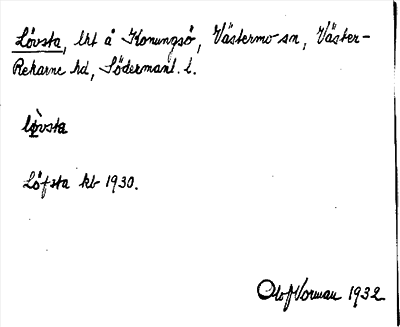 Lövsta, lht å Konungsö, Västermo sn, Väster-
Rekarne hd, Södermanl. l.
lövsta
Löfsta kb 1930.
Olof Vorman 1932